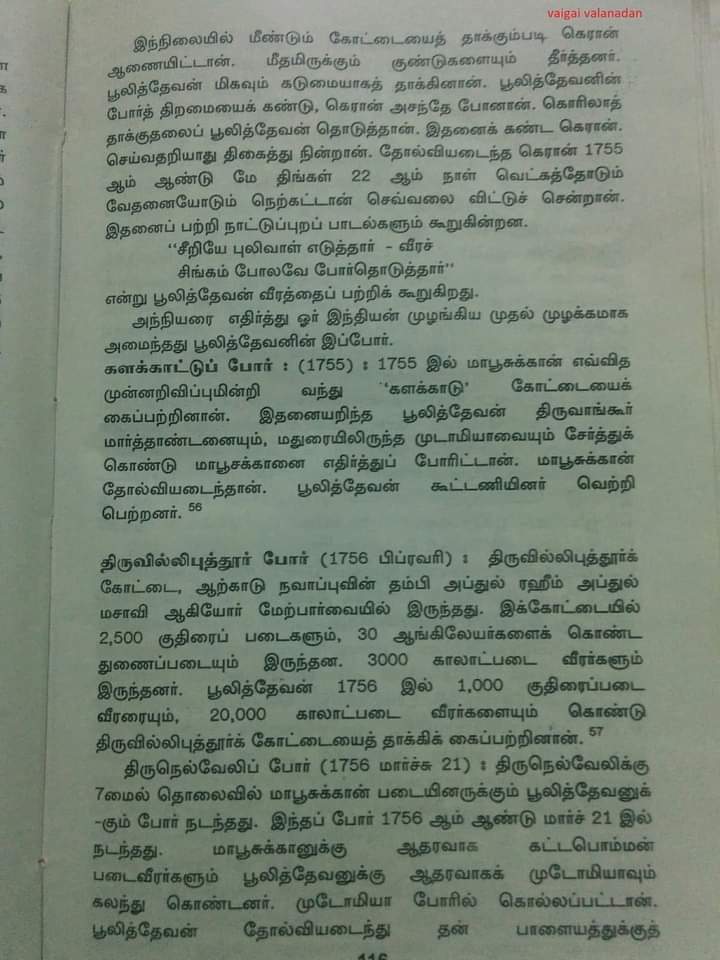 vaigai valanadan
இந்நிலையில் மீண்டும் கோட்டையைத் தாக்கும்படி கெரான்
ஆணையிட்டான். மீதமிருக்கும் குண்டுகளையும் தீர்த்தனர்.
பூலித்தேவன் மிகவும் கடுமையாகத் தாக்கினான். பூலித்தேவனின்
போர்த் திறமையைக் கண்டு, கெரான் அசந்தே போனான். கொரிலாத்
தாக்குதலைப் பூலித்தேவன் தொடுத்தான். இதனைக் கண்ட கெரான்.
செய்வதறியாது திகைத்து நின்றான். தோல்வியடைந்த கெரான் 1755
ஆம் ஆண்டு மே திங்கள் 22 ஆம் நாள் வெட்கத்தோடும்
வேதனையோடும் நெற்கட்டான் செவ்வலை விட்டுச் சென்றான்.
இதனைப் பற்றி நாட்டுப்புறப் பாடல்களும் கூறுகின்றன.
“சீறியே புலிவாள் எடுத்தார் - வீரச்
சிங்கம் போலவே போர்தொடுத்தார்”
என்று பூலித்தேவன் வீரத்தைப் பற்றிக் கூறுகிறது.
அந்நியரை எதிர்த்து ஓர் இந்தியன் முழங்கிய முதல் முழக்கமாக
அமைந்தது பூலித்தேவனின் இப்போர்.
களக்காட்டுப் போர் : (1755) : 1755 இல் மாபூசுக்கான் எவ்வித
முன்னறிவிப்புமின்றி வந்து ‘களக்காடு’ கோட்டையைக்
கைப்பற்றினான். இதனையறிந்த பூலித்தேவன் திருவாங்கூர்
மார்த்தாண்டனையும், மதுரையிலிருந்த முடாமியாவையும் சேர்த்துக்
கொண்டு மாபூசக்கானை எதிர்த்துப் போரிட்டான். மாபூசுக்கான்
தோல்வியடைந்தான். பூலித்தேவன் கூட்டணியினர் வெற்றி
பெற்றனர். 56
திருவில்லிபுத்தூர் போர் (1756 பிப்ரவரி) : திருவில்லிபுத்தூர்க்
கோட்டை, ஆற்காடு நவாப்புவின் தம்பி அப்துல் ரஹீம் அப்துல்
மசாவி ஆகியோர் மேற்பார்வையில் இருந்தது. இக்கோட்டையில்
2,500 குதிரைப் படைகளும், 30 ஆங்கிலேயர்களைக் கொண்ட
துணைப்படையும் இருந்தன. 3000 காலாட்படை வீரர்களும்
இருந்தனர். பூலித்தேவன் 1756 இல் 1,000 குதிரைப்படை
வீரரையும், 20,000 காலாட்படை வீரர்களையும் கொண்டு
திருவில்லிபுத்தூர்க் கோட்டையைத் தாக்கிக் கைப்பற்றினான். 57
திருநெல்வேலிப் போர் (1756 மார்ச்சு 21) : திருநெல்வேலிக்கு
7மைல் தொலைவில் மாபூசுக்கான் படையினருக்கும் பூலித்தேவனுக்
-கும் போர் நடந்தது. இந்தப் போர் 1756 ஆம் ஆண்டு மார்ச் 21 இல்
நடந்தது. மாபூசுக்கானுக்கு ஆதரவாக கட்டபொம்மன்
படைவீரர்களும் பூலித்தேவனுக்கு ஆதரவாகக் முடோமியாவும்
கலந்து கொண்டனர். முடோமியா போரில் கொல்லப்பட்டான்.
பூலித்தேவன் தோல்வியடைந்து தன் பாளையத்துக்குத்